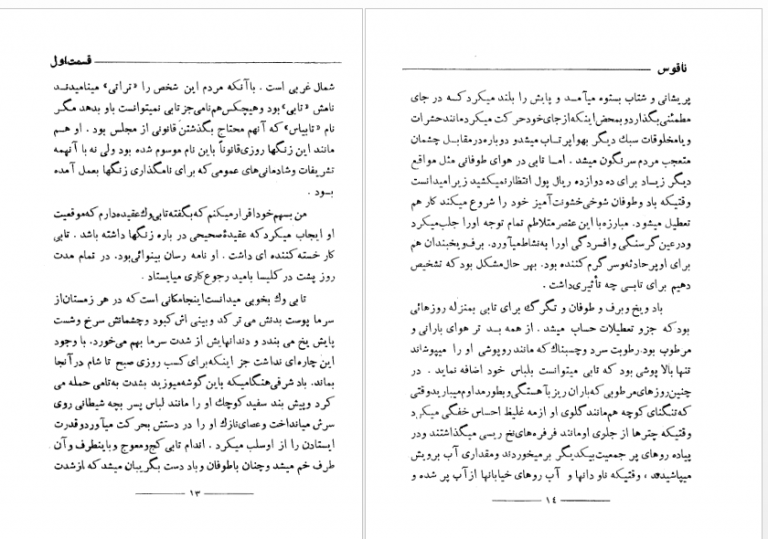 قسمت اول
شمال غربی است . باآنکه مردم این شخص را «تراتی» مینامیدند
نامش «تابی» بود وهیچکس هم‌نامی جز تابی نمیتوانست باو بدهد مگر
نام «تابیاس» که آنهم محتاج بگذشتن قانونی از مجلس بود . او هم
مانند این زنگها روزی قانوناً باین نام موسوم شده بود ولی نه با آنهمه
تشریفات وشادمانی‌های عمومی که برای نامگذاری زنگها بعمل آمده
بود .
من بسهم خود اقرار میکنم که بگفته تابی وك عقیده دارم که موقعیت
او ایجاب میکرد که عقیدهٔ صحیحی در باره زنگها داشته باشد . تابی
کار خسته کننده ای داشت . او نامه رسان بینوائی بود. در تمام مدت
روز پشت در کلیسا بامید رجوع کاری میایستاد .
تابی وك بخوبی میدانست اینجا مکانی است که در هر زمستان از
سرما پوست بدنش می ترکد و بینی اش کبود وچشمانش سرخ وشست
پایش یخ می بندد و دندانهایش از شدت سرما بهم می‌خورد. با وجود
این چاره‌ای نداشت جز اینکه برای کسب روزی صبح تا شام در آنجا
بماند. باد شرقی هنگامیکه باین گوشه میوزید بشدت به تامی حمله می
کرد وپیش بند سفید کوچك او را مانند لباس پسر بچه شیطانی روی
سرش میانداخت وعصای نازك او را در دستش بحرکت میآورد و قدرت
ایستادن را از او سلب میکرد . اندام تابی کج ومعوج و باینطرف و آن
طرف خم میشد وچنان باطوفان وباد دست بگریبان میشد که از شدت
۱۳
ناقوس
پریشانی و شتاب بستوه میآمد و پایش را بلند میکرد که در جای
مطمئنی بگذارد و بمحض اینکه از جای خود حرکت میکرد مانند حشرات
و یا مخلوقات سبك دیگر بهوا پرتاب میشد و دوباره در مقابل چشمان
متعجب مردم سرنگون میشد . اما تابی در هوای طوفانی مثل مواقع
دیگر زیاد برای ده دوازده ریال پول انتظار نمیکشید زیرا میدانست
وقتیکه باد وطوفان شوخی خشونت آمیز خود را شروع میکند کار هم
تعطیل میشود. مبارزه با این عنصر متلاطم تمام توجه اورا جلب میکرد
و در عین گرسنگی و افسردگی اورا به نشاط میآورد. برف ویخبندان هم
برای او پر حادثه وسرگرم کننده بود. بهر حال مشکل بود که تشخیص
دهیم برای تابی چه تأثیری داشت .
باد ویخ وبرف و طوفان و تگرگ برای تابی بمنزله روزهائی
بود که جزو تعطیلات حساب میشد . از همه بد تر هوای بارانی و
مرطوب بود. رطوبت سرد وچسبناك که مانند روپوشی او را میپوشاند
تنها بالا پوشی بود که تابی میتوانست بلباس خود اضافه نماید . در
چنین روزهای مرطوبی که باران ریز با آهستگی وبطور مداوم میبارید وقتی
که تنگنای کوچه هم مانند گلوی او از مه غلیظ احساس خفگی میکرد
وقتیکه چترها از جلوی او مانند فرفره‌های نخ ریسی میگذاشتند و در
پیاده روهای پر جمعیت بیکدیگر برمیخوردند ومقداری آب برویش
میپاشیدند ، وقتیکه ناو دانها و آب روهای خیابانها از آب پر شده و
۱٤